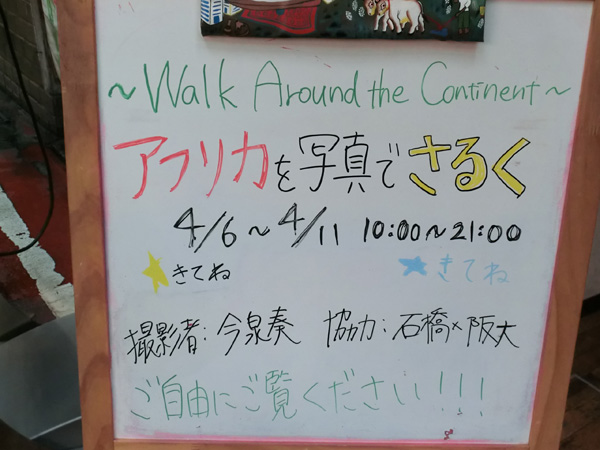 ~Walk Around the Continent~
アフリカを写真でさるく
4/6~4/11 10:00~21:00
★きてね ★きてね
撮影者:今泉奏 協力:石橋×阪大
ご自由にご覧ください!!!